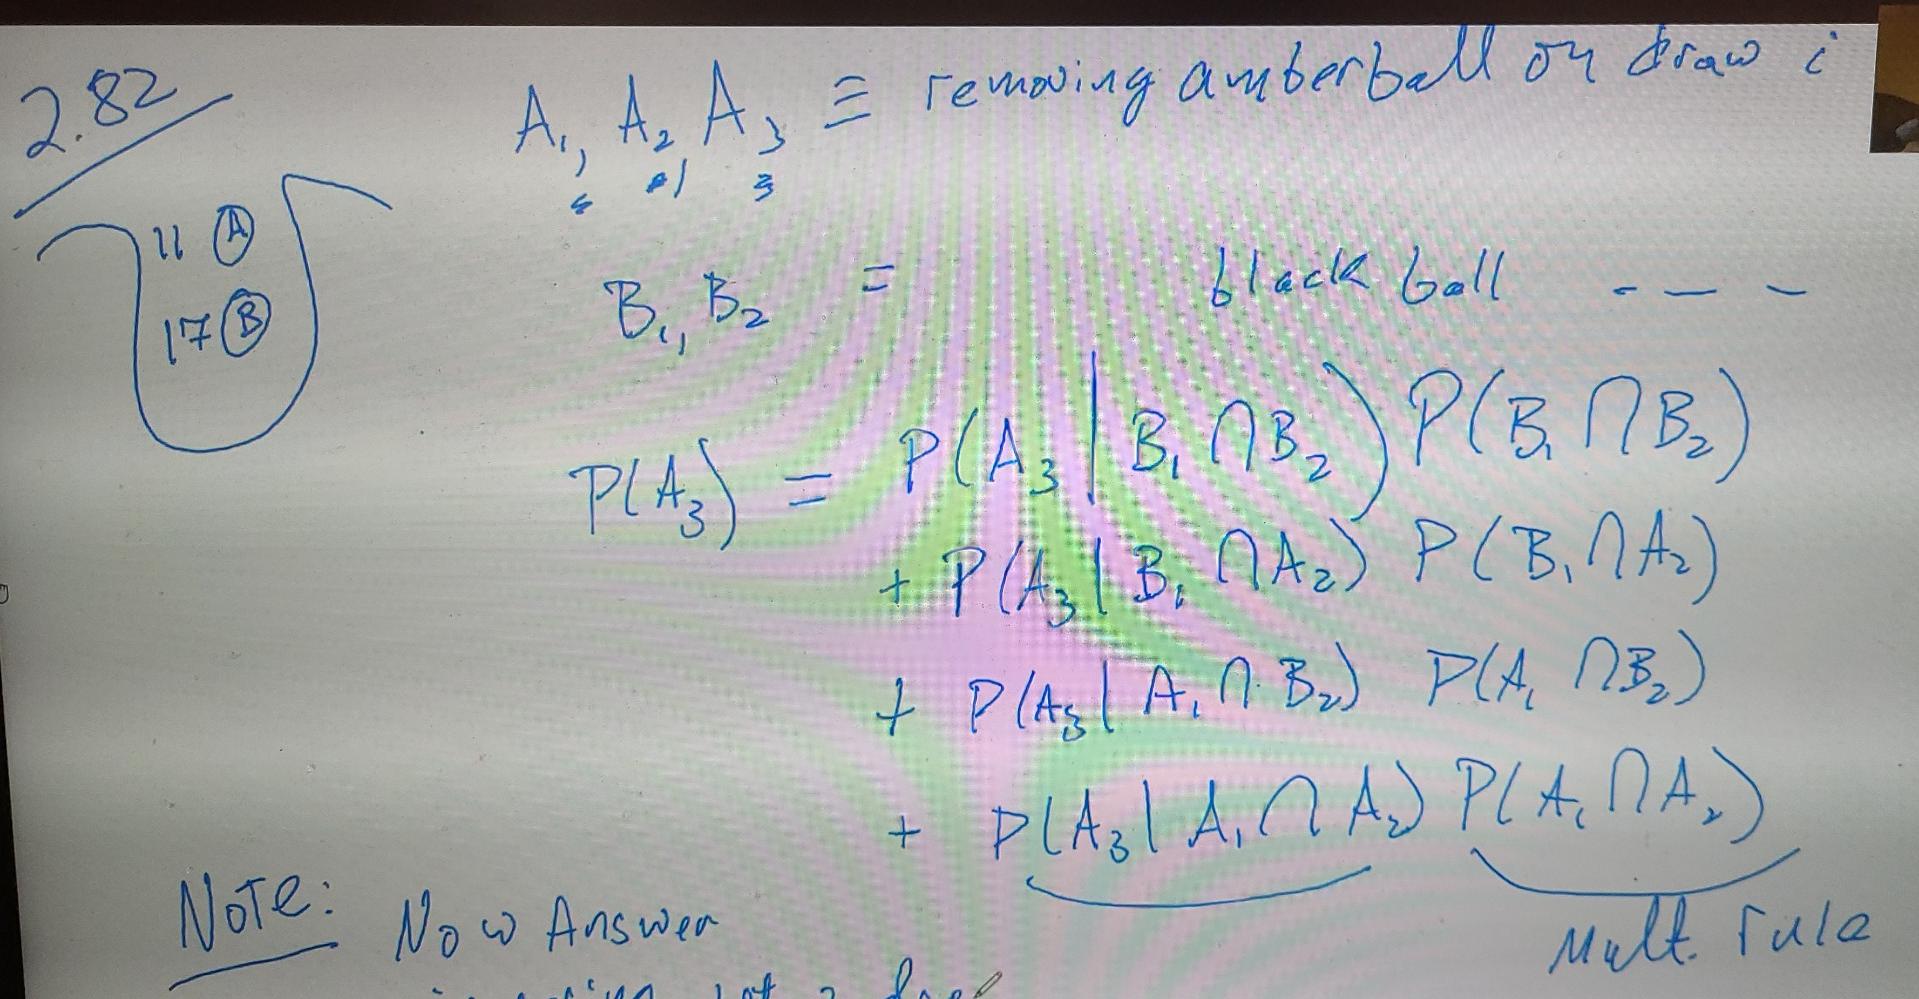 2.82
A₁, A₂, A₃ ≡ removing amberball on draw i
11 Ⓐ
17 Ⓑ
B₁, B₂ = black ball - - -
P(A₃) = P(A₃ | B₁ ∩ B₂) P(B₁ ∩ B₂)
+ P(A₃ | B₁ ∩ A₂) P(B₁ ∩ A₂)
+ P(A₃ | A₁ ∩ B₂) P(A₁ ∩ B₂)
+ P(A₃ | A₁ ∩ A₂) P(A₁ ∩ A₂)
Mult. rule
Note: Now Answer